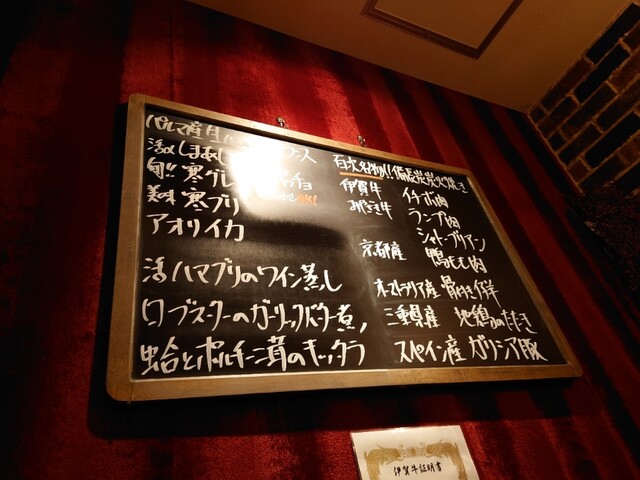 パルマ産生ハム
活〆しまあじ
旬!! 寒グレ
美味 寒ブリ OK!
アオリイカ
活ハマブリのワイン蒸し
ロブスターのガーリックバター煮
蛤とポルチーニ茸のキッタラ
当店名物!! 備長炭炭火焼き
伊賀牛 イチボ肉
みやざき牛 ランプ肉
シャトーブリアン
京都産 鴨もも肉
オーストラリア産 骨付き仔羊
三重県産 地鶏のたたき
スペイン産 ガリシア豚
伊賀牛証明書